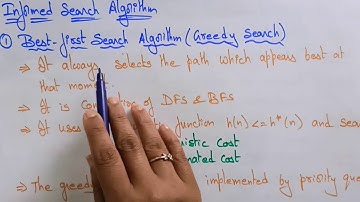 Informed Search Algorithm
① Best-first Search Algorithm (Greedy Search)
⇒ It always selects the path which appears best at
that
⇒ It is of DFS & BFS
⇒ It uses function h(n) <= h*(n) and
cost
cost
⇒ The implemented by priority